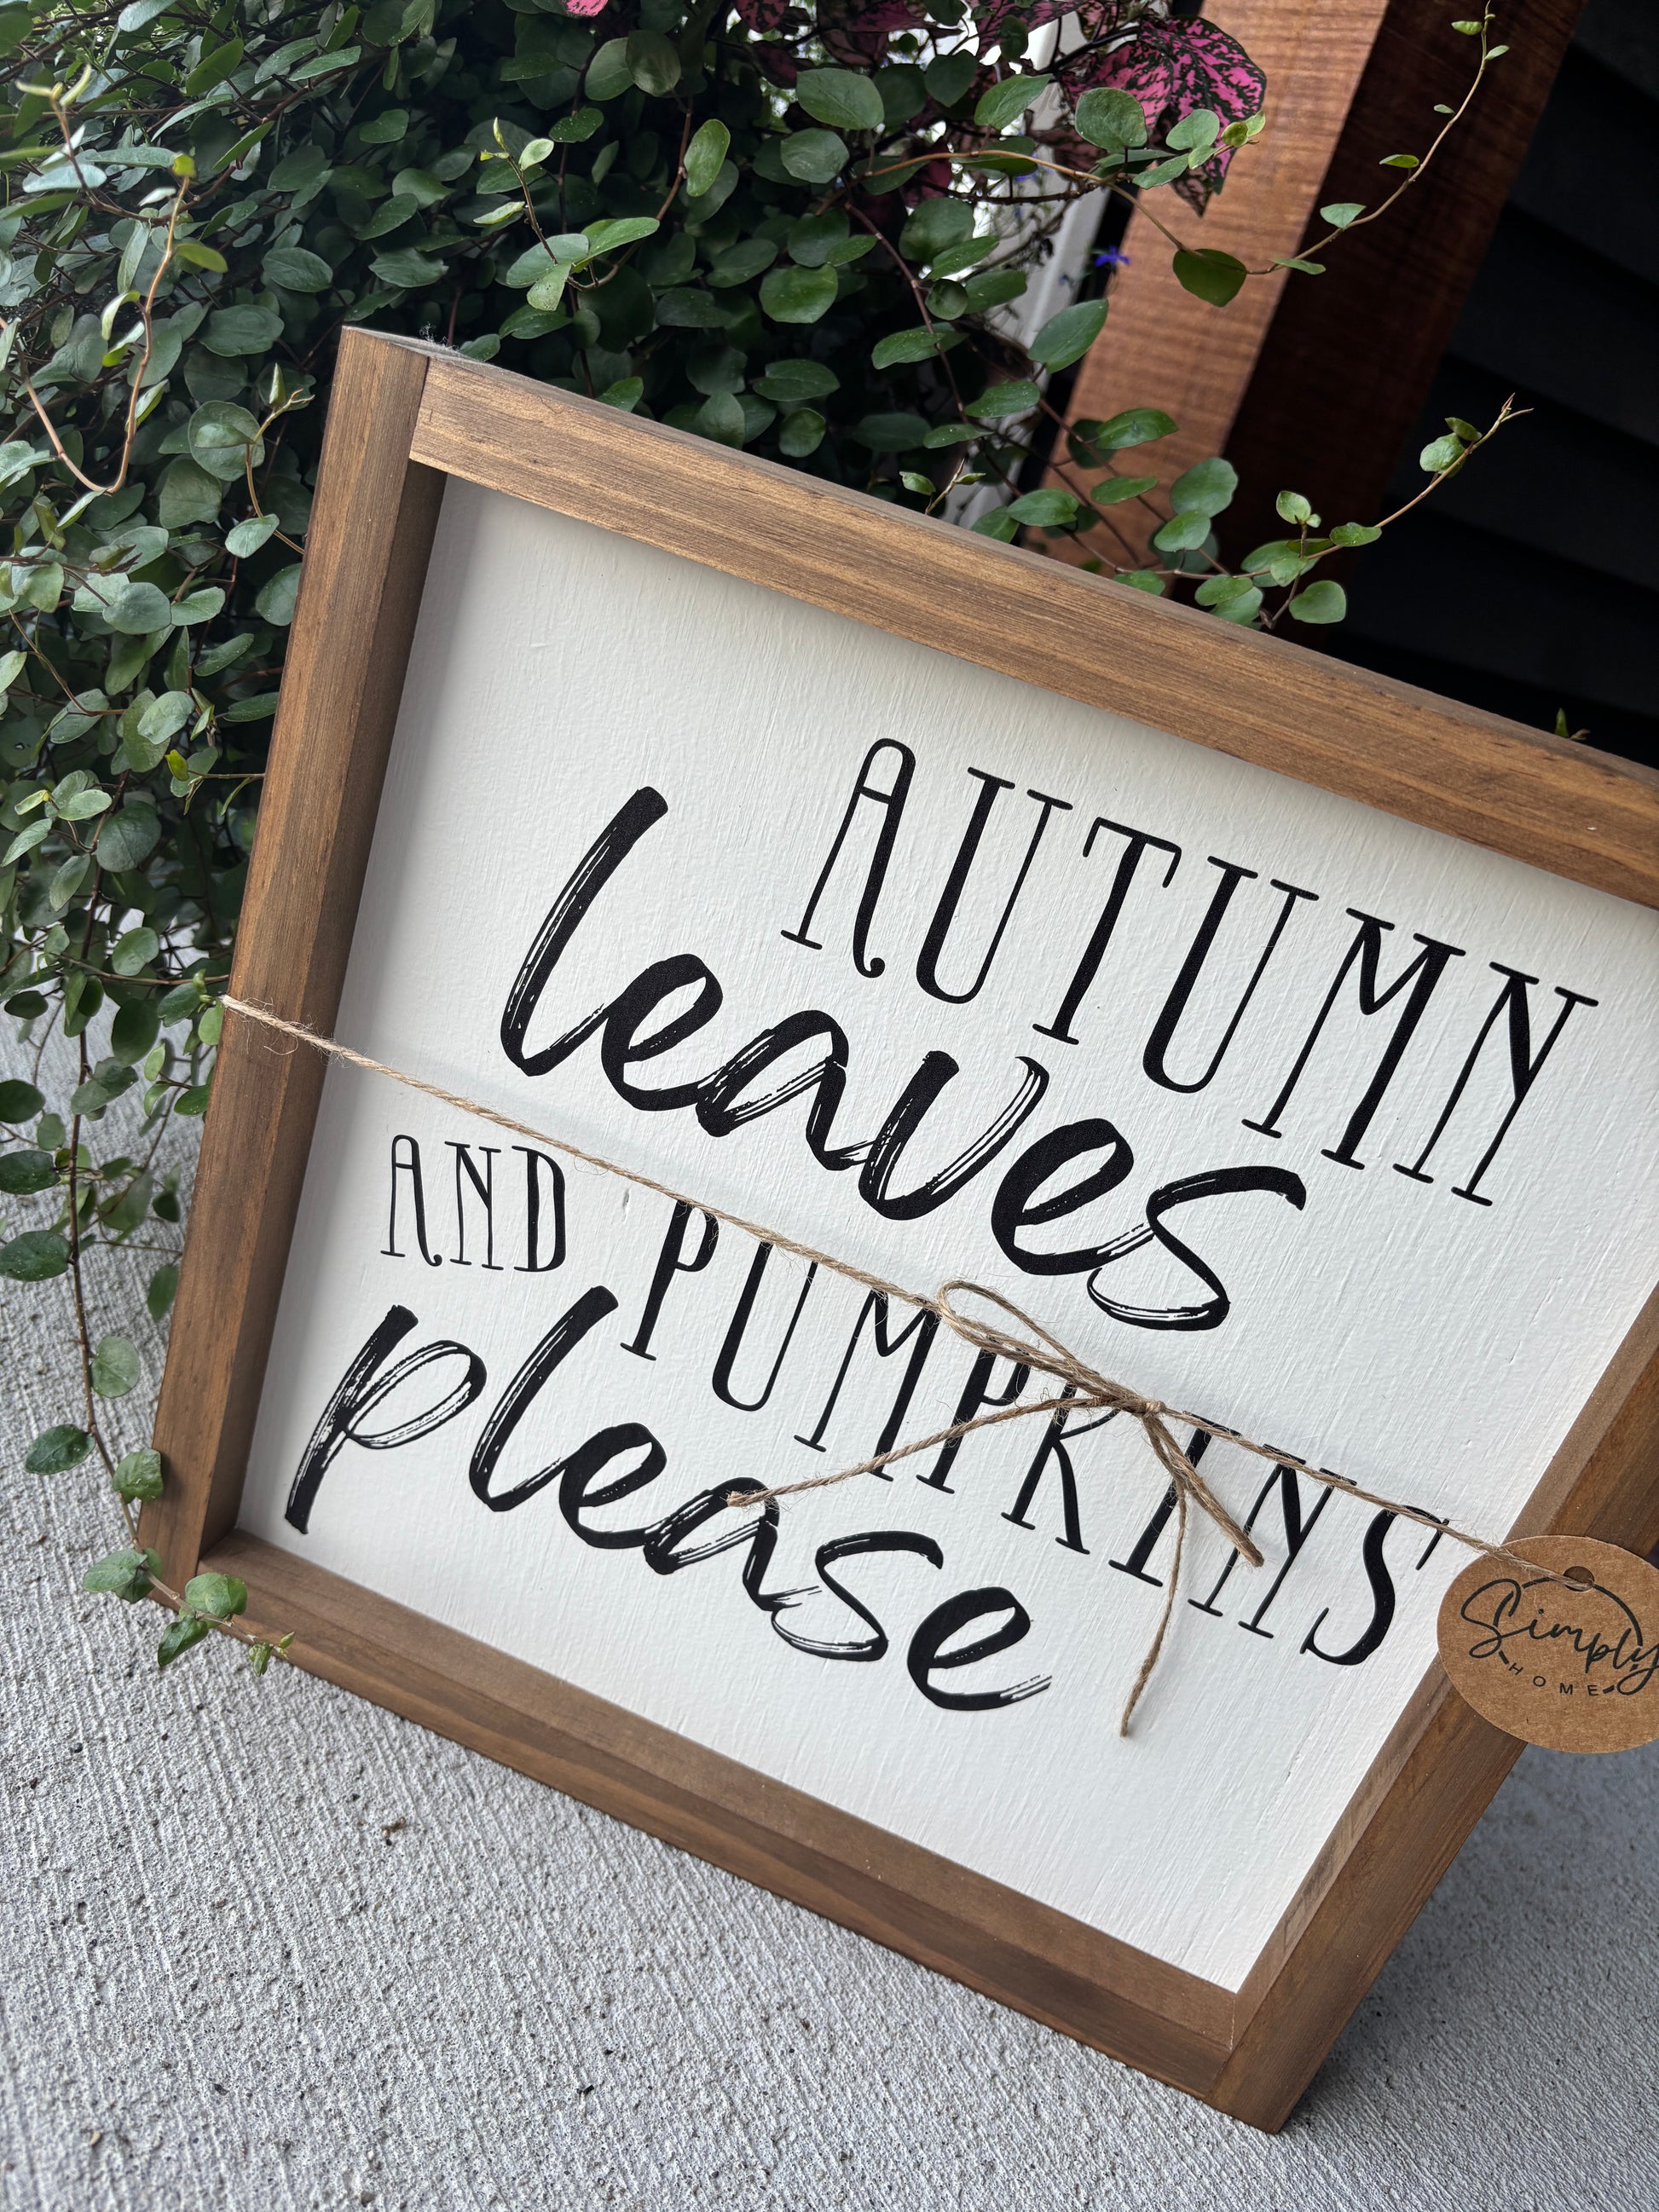 AUTUMN
leaves
AND PUMPKINS
please
Simply
HOME